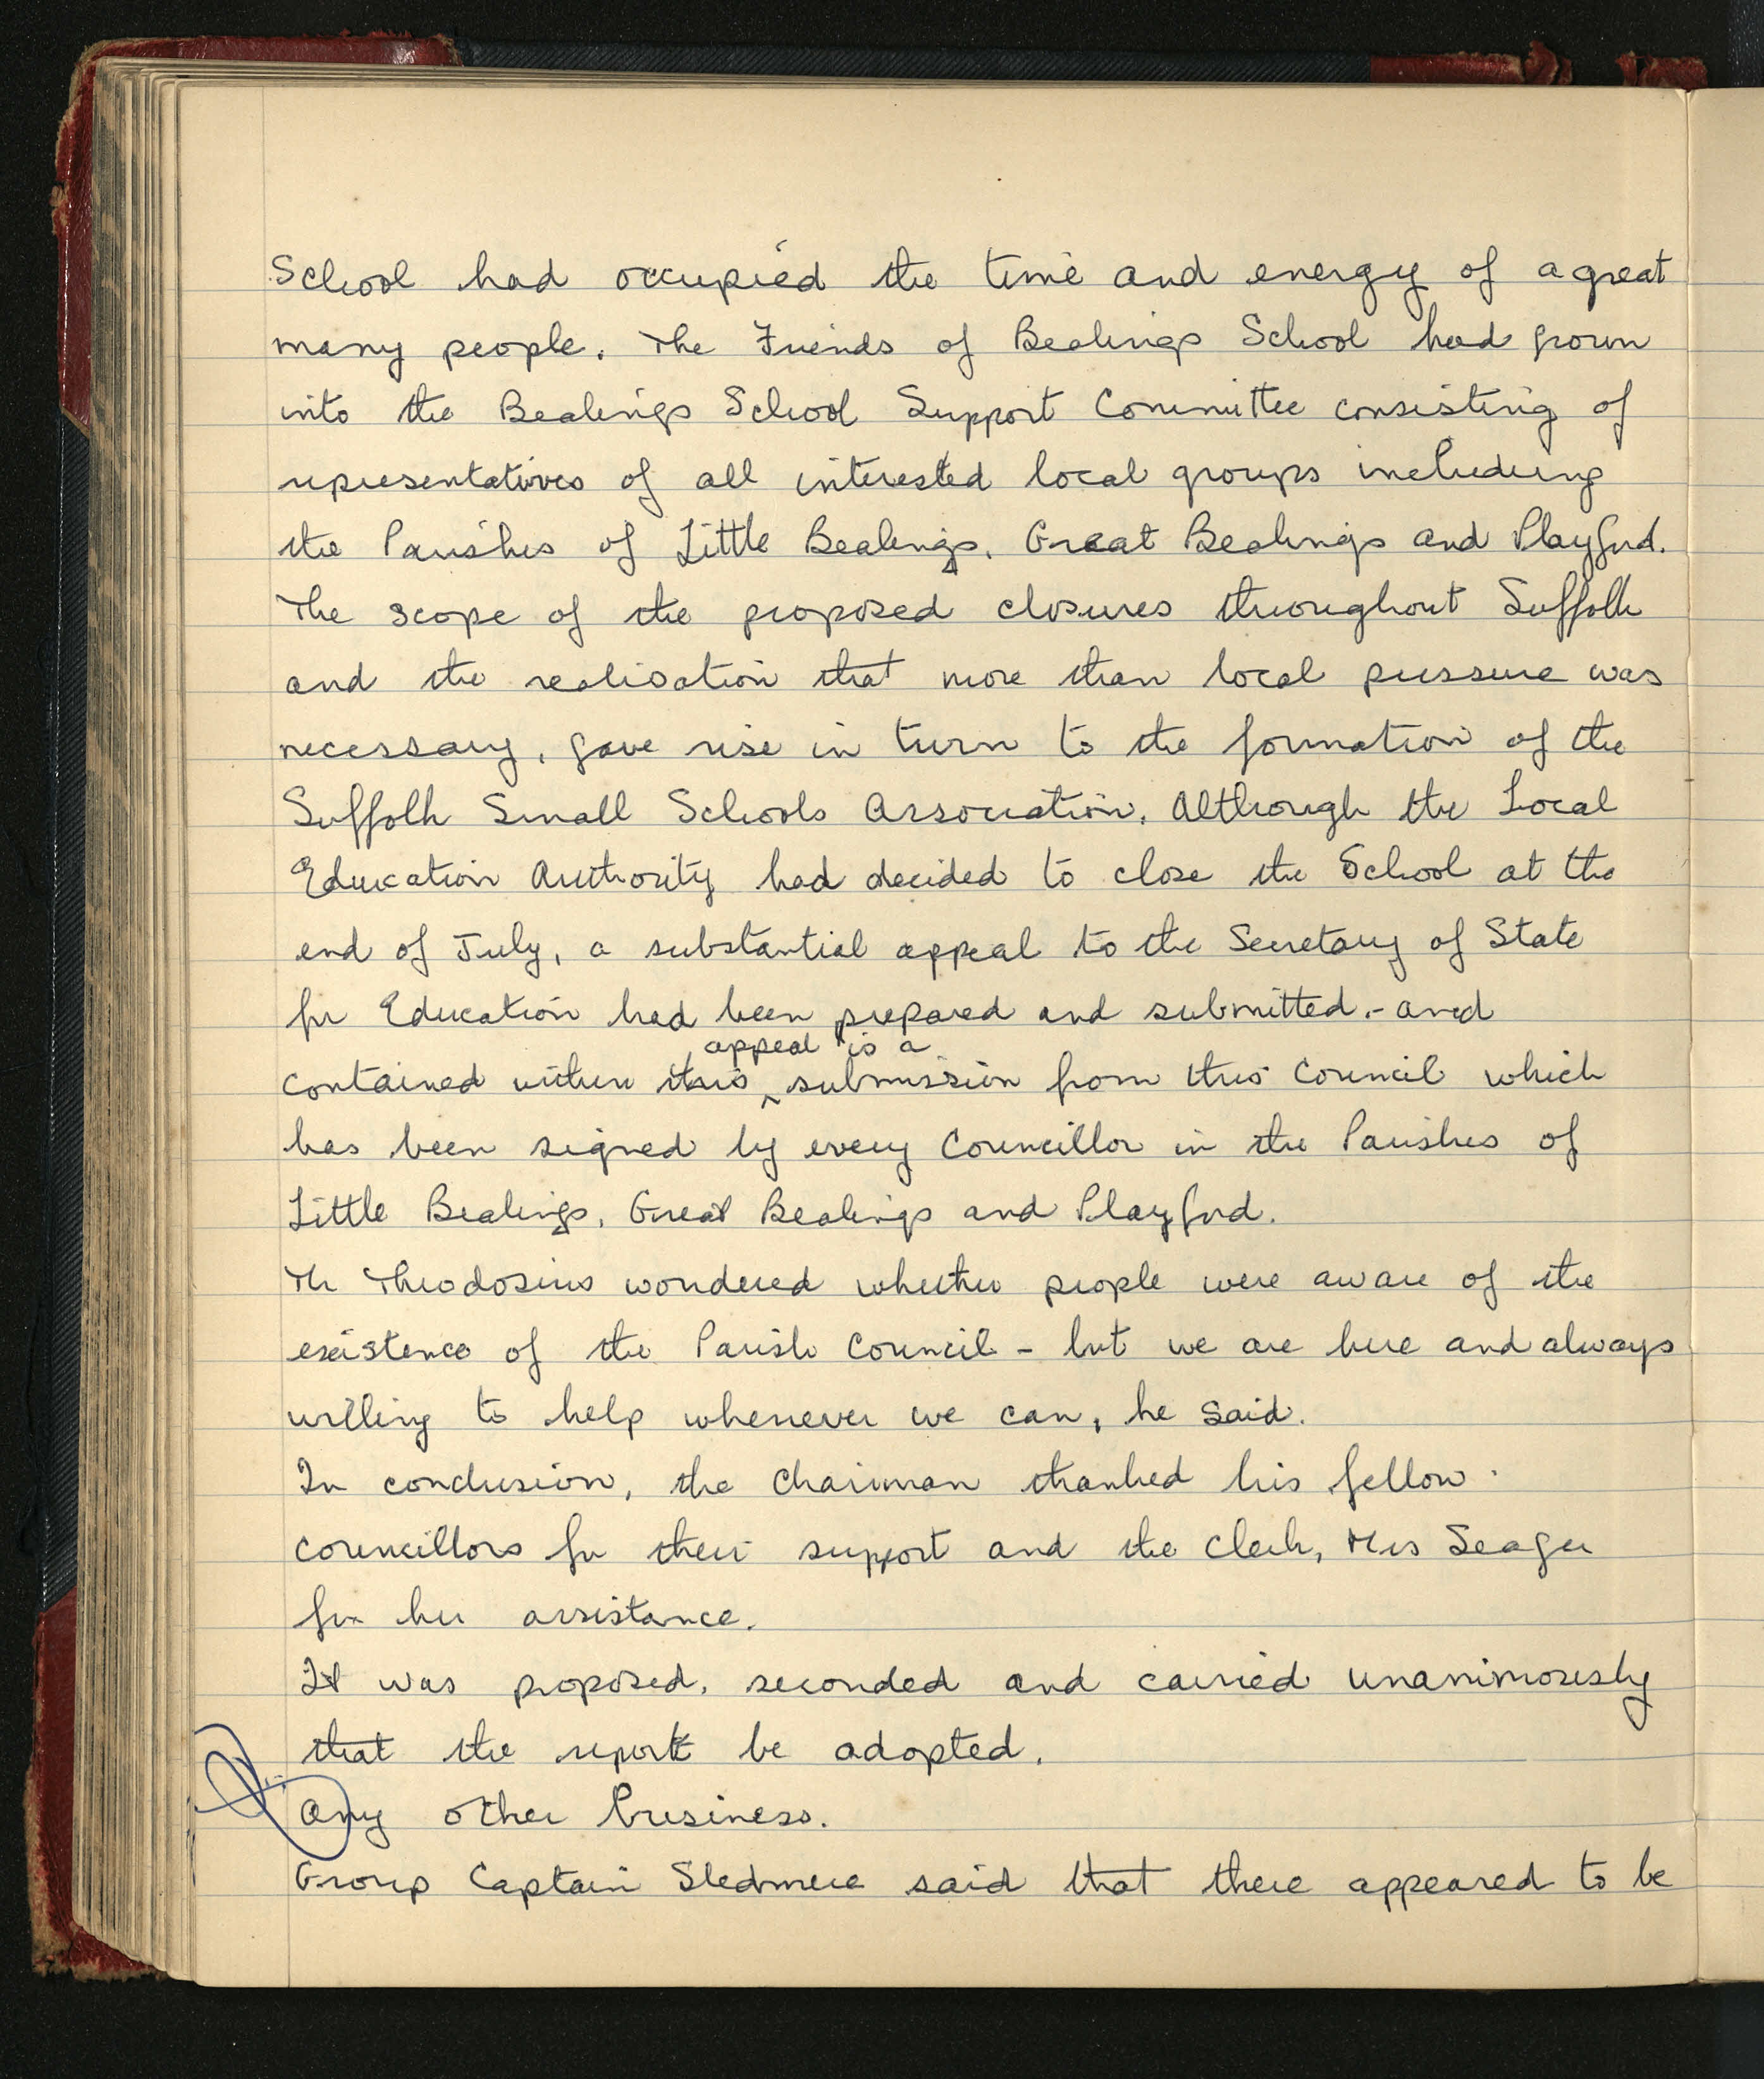 School had occupied the time and energy of a great
many people. The Friends of Bealings School had grown
into the Bealings School Support Committee consisting of
representatives of all interested local groups including
the Parishes of Little Bealings, Great Bealings and Playford.
The scope of the proposed closures throughout Suffolk
and the realisation that more than local pressure was
necessary, gave rise in turn to the formation of the
Suffolk Small Schools Association. Although the Local
Education Authority had decided to close the School at the
end of July, a substantial appeal to the Secretary of State
for Education had been prepared and submitted - and
appeal is a
contained within this ‸ submission from this Council which
has been signed by every Councillor in the Parishes of
Little Bealings, Great Bealings and Playford.
Mr Theodosius wondered whether people were aware of the
existence of the Parish Council - but we are here and always
willing to help whenever we can, he said.
In conclusion, the Chairman thanked his fellow
councillors for their support and the Clerk, Mrs Seager
for her assistance.
It was proposed, seconded and carried unanimously
that the report be adopted.
Any other business.
Group Captain Sledmere said that there appeared to be